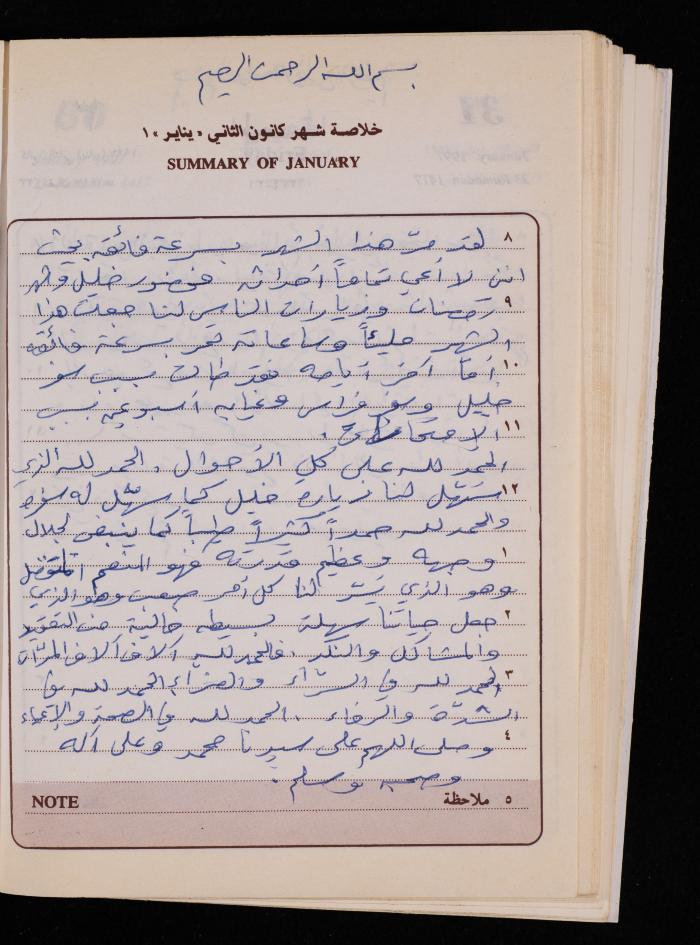 بسم الله الرحمن الرحيم
خلاصة شهر كانون الثاني «يناير» ١
SUMMARY OF JANUARY
٨ لقد مرّ هذا الشهر بسرعة فائقة بحيث
انني لا أعي تماماً أحداثه فحضور خليل وشهر
٩ رمضان وزيارات الناس لنا جعلت هذا
الشهر مليئاً وساعاته تمر بسرعة فائقة
١٠ أمّا آخر أيامه فقد طالت بسبب سفر
خليل وسفر فراس وغيابه أسبوعين بسبب
١١ الامتحانات.
الحمد لله على كل الأحوال. الحمد لله الذي
١٢ سهّل لنا زيارة خليل كما سهّل له سفره
والحمد لله حمداً كثيراً طيباً كما ينبغي لجلال
١ وجهه وعظيم قدرته فهو المنعم المتفضل
وهو الذي يسّر لنا كل أمر صعب وهو الذي
٢ جعل حياتنا سهلة بسيطة خالية من التعقيد
والمشاكل والنكد. فالحمد لله آلاف آلاف المرّات
٣ الحمد لله في السرّاء والضرّاء الحمد لله في
الشدّة والرخاء. الحمد لله في الصحة والإعياء
٤ وصلى اللهم على سيدنا محمد وعلى آله
وصحبه وسلم.
NOTE ٥ ملاحظة